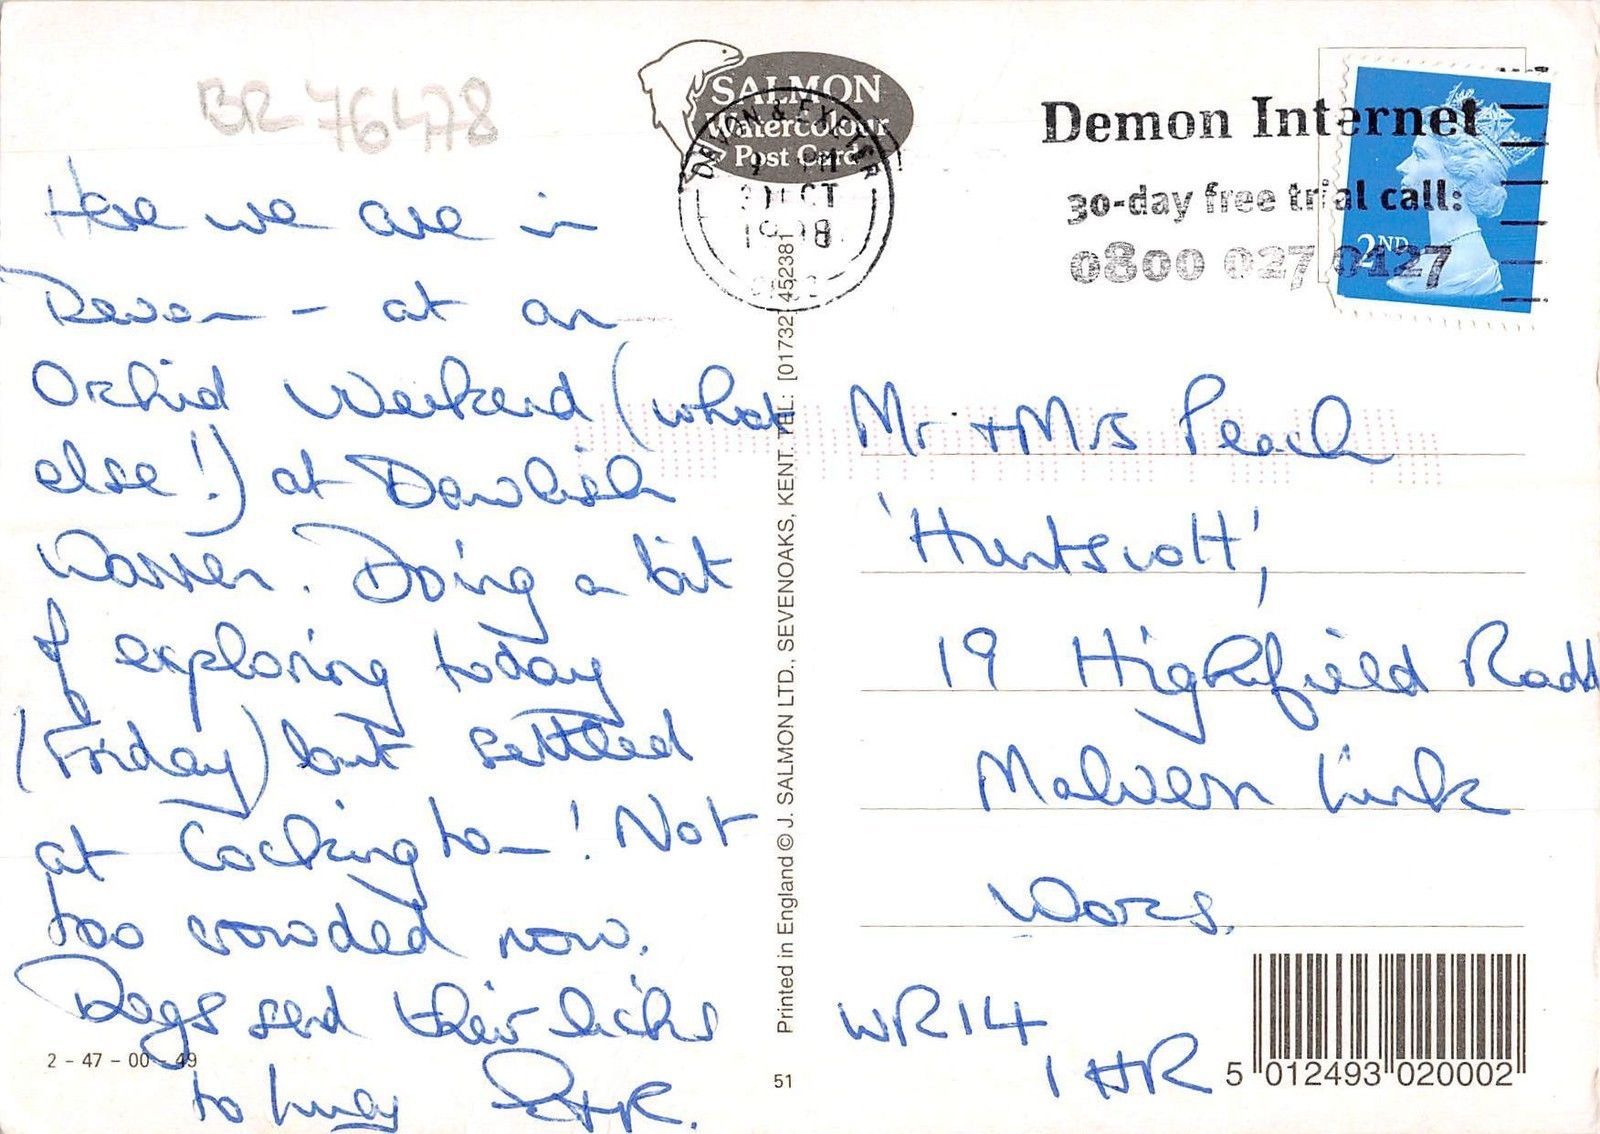 BR 76478
SALMON
Watercolour
Post Card
DEVON & EXETER
PM
OCT
Demon Internet
30-day free trial call:
0800 027 0127
2ND
Here we are in
Devon - at an
Orchid Weekend (what
else!) at Dawlish
Warren. Doing a bit
of exploring today
(Friday) but settled
at Cockington! Not
too crowded now.
Dogs send their licks
to
2 - 47 - 00 - 49
Printed in England © J. SALMON LTD., SEVENOAKS, KENT. TEL: [01732] 452381
51
Mr + Mrs Peach
'Huntscott',
19 Highfield Road
Malvern Link
Worcs.
WR14
1HR
5 012493 020002